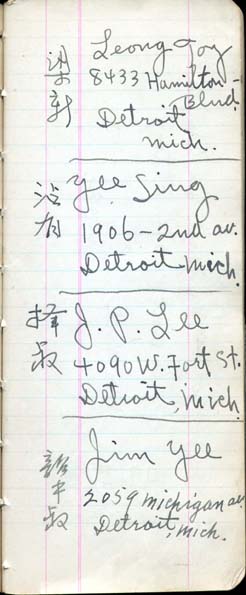 梁新
Leong Toy
8433 Hamilton-
Blvd.
Detroit
mich.
沾有
Yee Sing
1906-2nd av.
Detroit mich.
择叔
J. P. Lee
4090 W. Fort St.
Detroit, mich.
中叔
Jim Yee
2059 michigan av.
Detroit, mich.